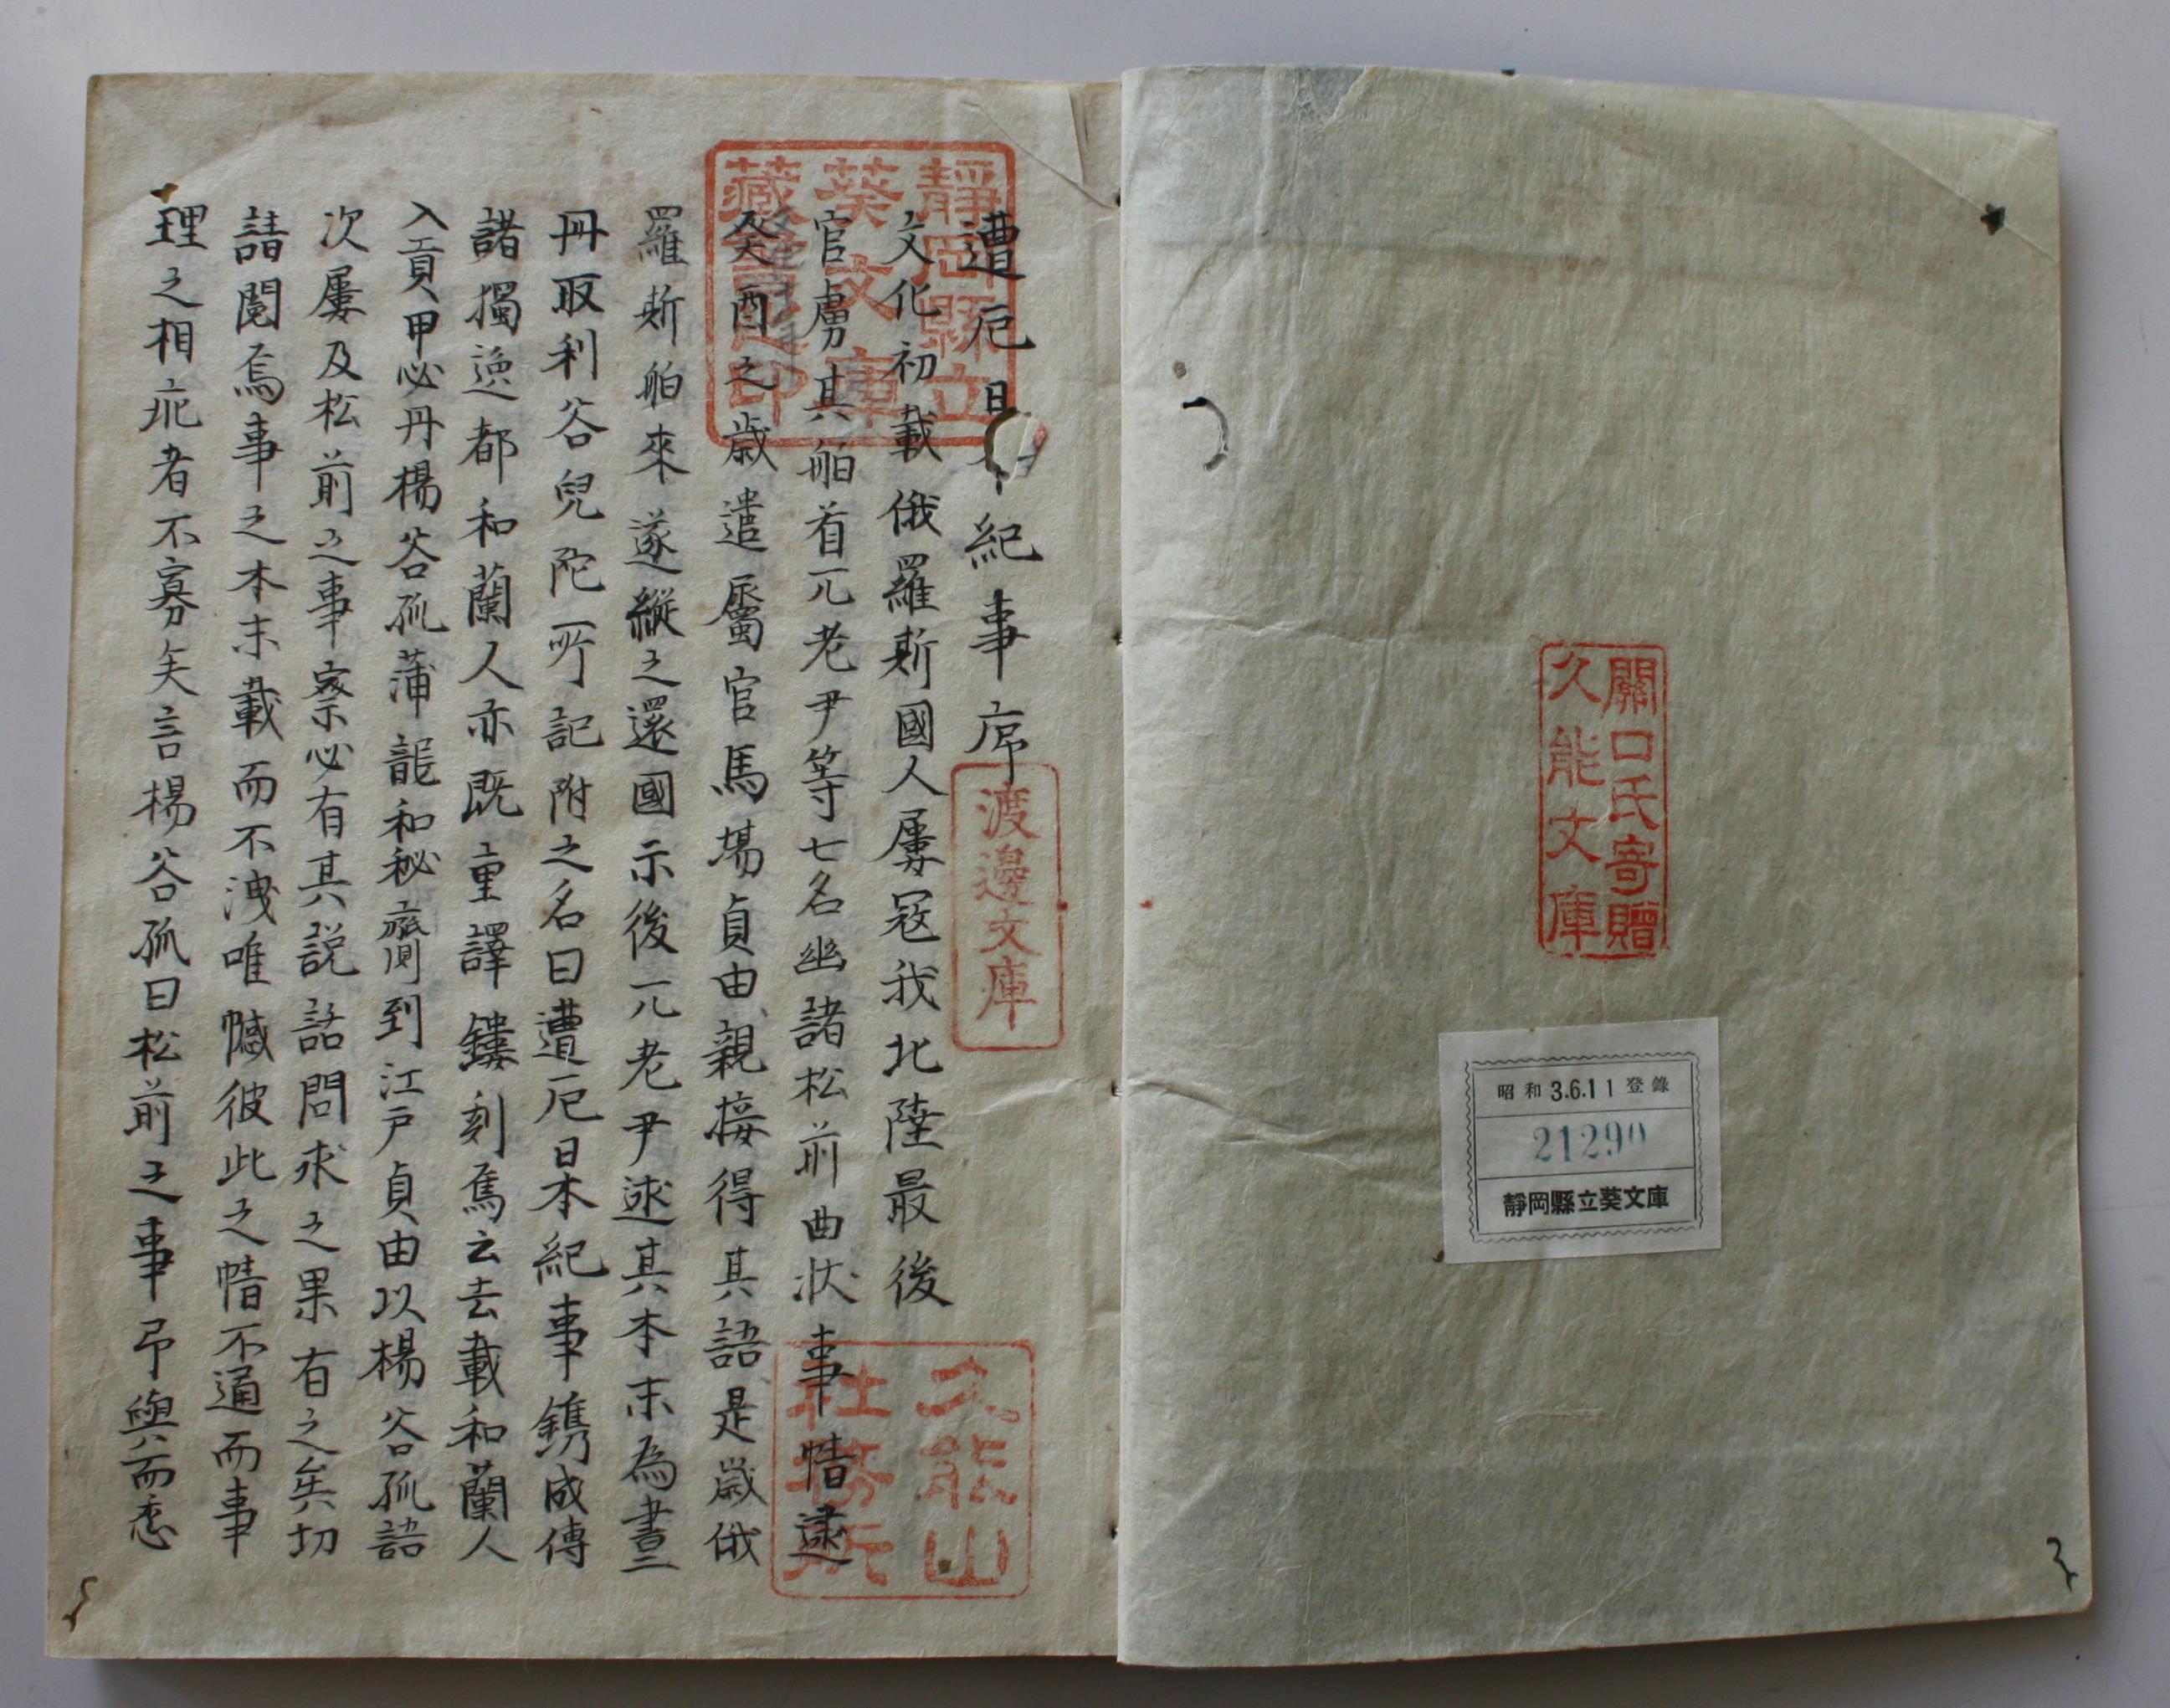 關口氏寄贈
久能文庫
昭和 3.6.11 登錄
21290
靜岡縣立葵文庫
靜岡縣立
葵文庫
藏書之印
遭厄日本紀事序
渡邊文庫
文化初載俄羅斯國人屢寇我北陸最後
官虜其舶首兀老尹等七名幽諸松前曲狀事情逮
癸酉之歲遣屬官馬場貞由親接得其語是歲俄
羅斯舶來遂縱之還國示後兀老尹述其本末為書三
丹取利谷兒陀所記附之名曰遭厄日本紀事鐫成傳
諸獨逸都和蘭人亦既重譯鏤刻焉云去載和蘭人
入貢甲必丹楊谷孤蒲龍和秘齋到江戶貞由以楊谷孤語
次屢及松前之事察必有其說話問求之果有之矣切
請閱焉事之本末載而不洩唯憾彼此之情不通而事
理之相疪者不寡矣言楊谷孤曰松前之事弔與而悉
久能山
社務所